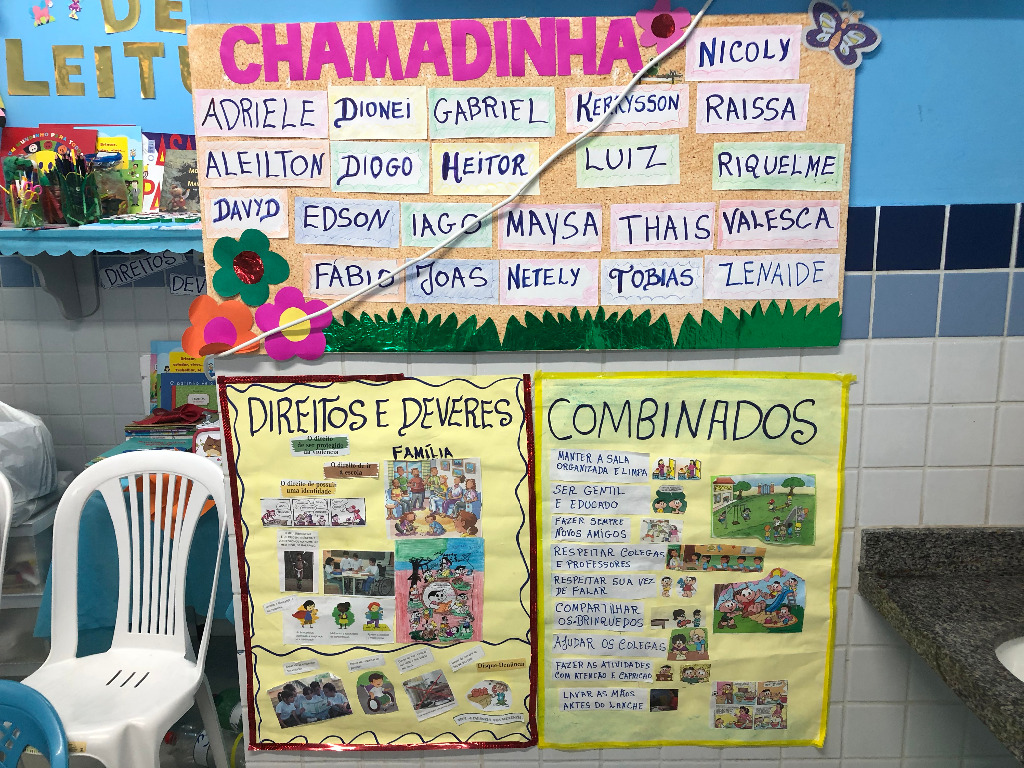 DE
LEITU
CHAMADINHA
NICOLY
ADRIELE
DIONEI
GABRIEL
KERRYSSON
RAISSA
ALEILTON
DIOGO
HEITOR
LUIZ
RIQUELME
DAVYD
EDSON
IAGO
MAYSA
THAIS
VALESCA
FÁBIO
JOAS
NETELY
TOBIAS
ZENAIDE
DIREITOS
DEV
DIREITOS E DEVERES
O direito
de ser protegido
da violência
FAMÍLIA
O direito de ir
a escola
O direito de possuir
uma identidade
Disque Denúncia
COMBINADOS
MANTER A SALA
ORGANIZADA E LIMPA
SER GENTIL
E EDUCADO
FAZER SEMPRE
NOVOS AMIGOS
RESPEITAR COLEGAS
E PROFESSORES
RESPEITAR SUA VEZ
DE FALAR
COMPARTILHAR
OS BRINQUEDOS
AJUDAR OS COLEGAS
FAZER AS ATIVIDADES
COM ATENÇÃO E CAPRICHO
LAVAR AS MÃOS
ANTES DO LANCHE